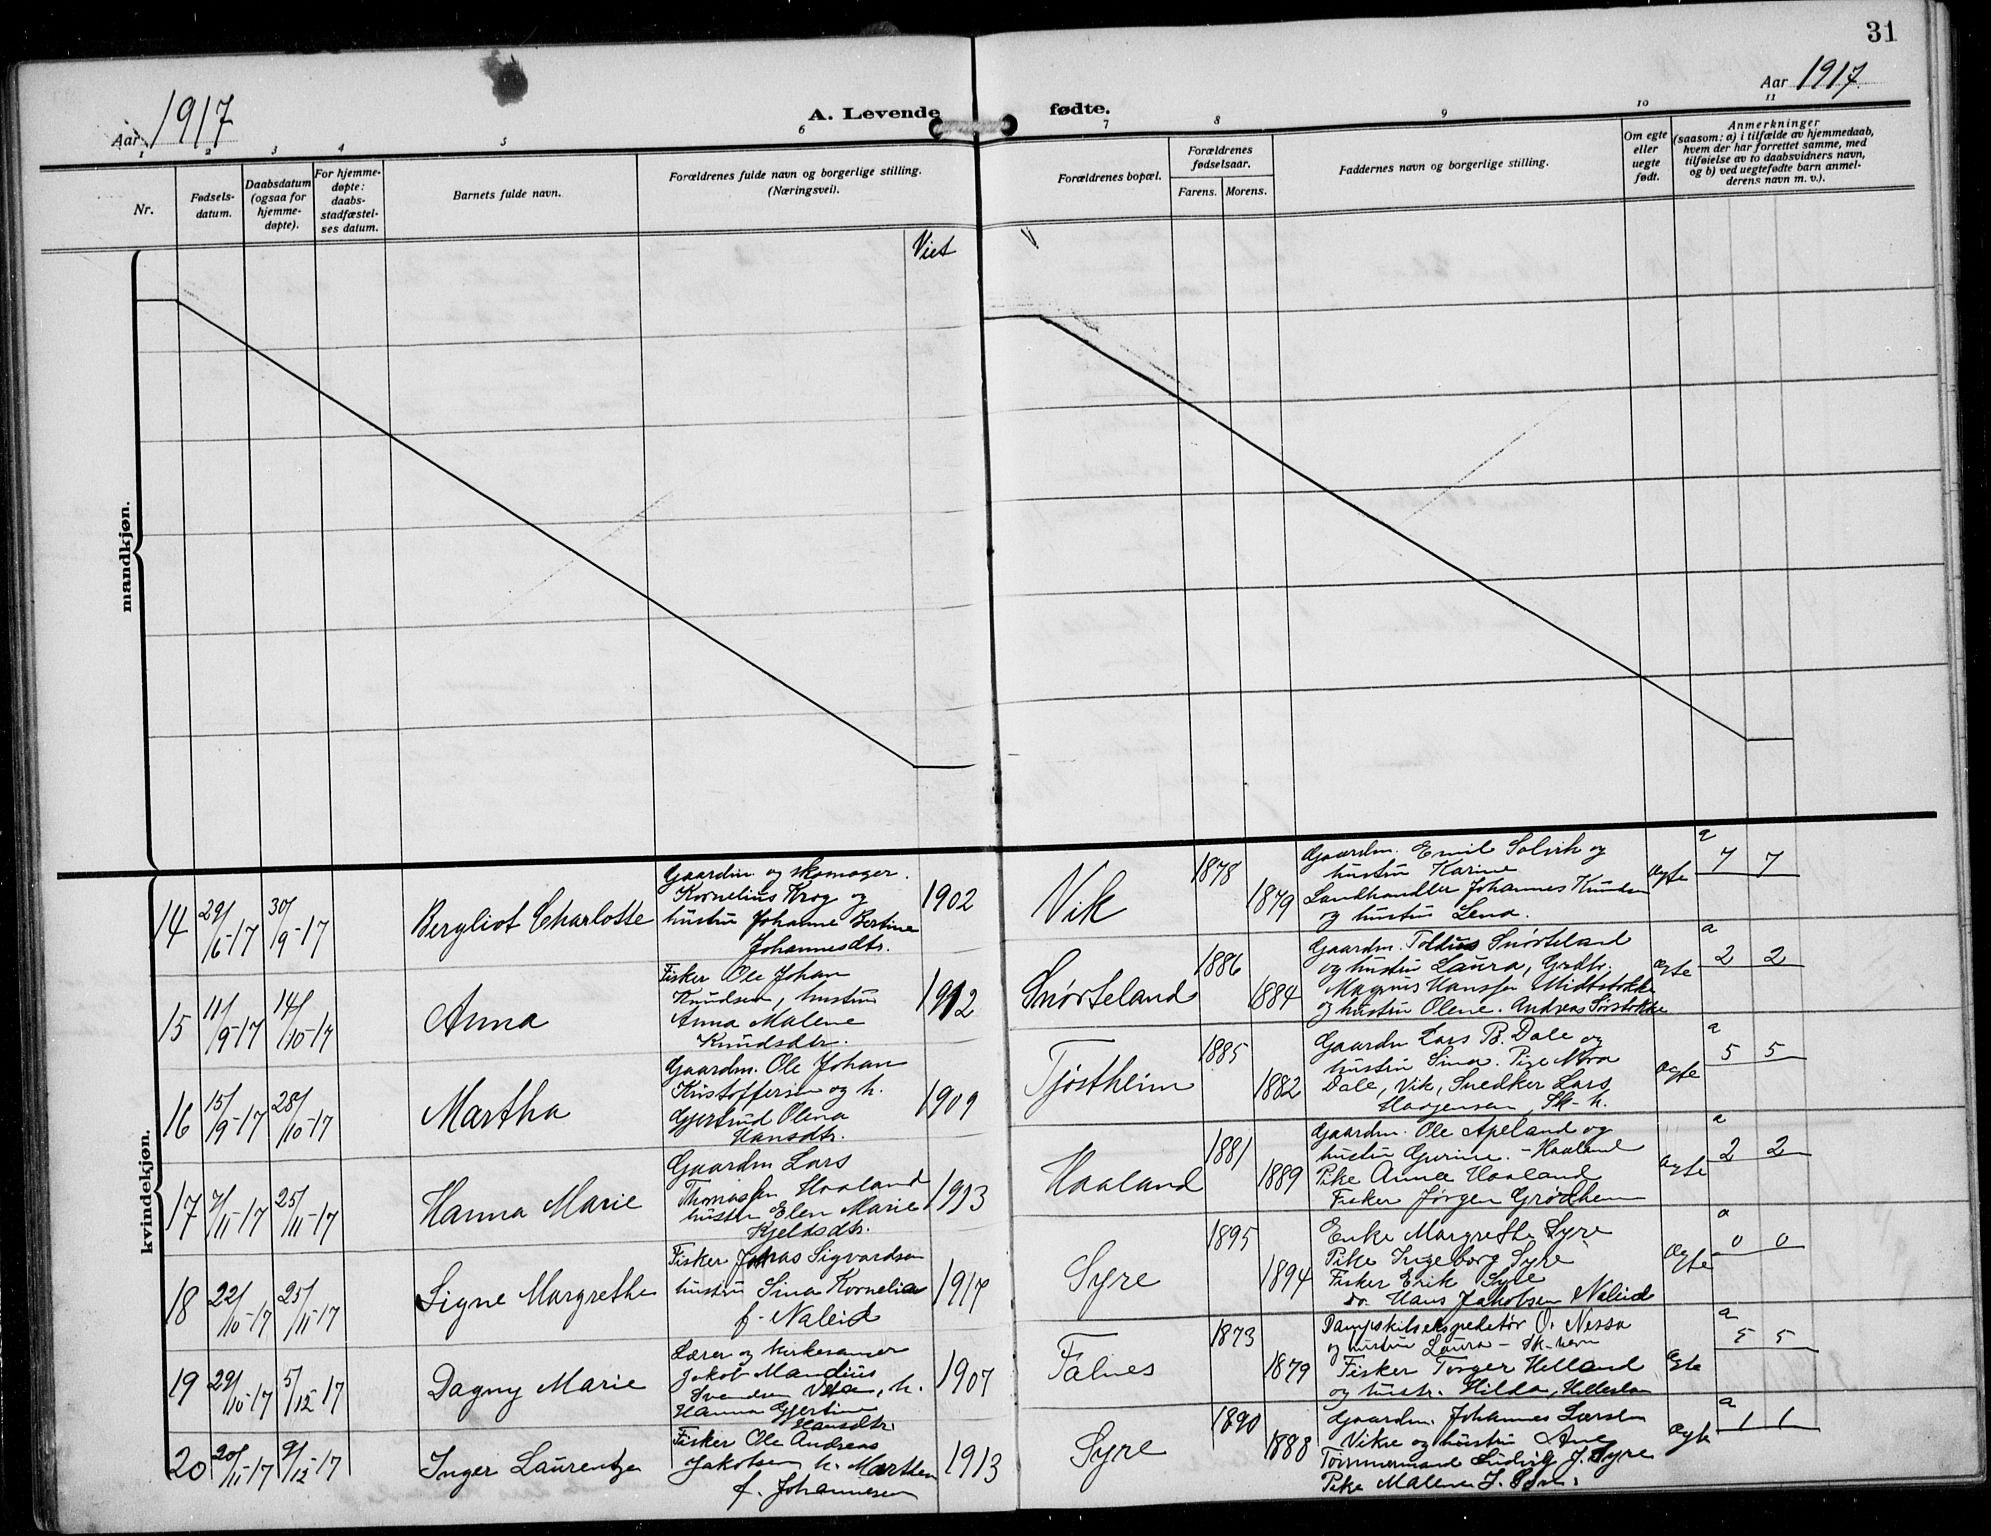 31
Aar 1917
A. Levende fødte.
Aar 1917.
1 2 3 4 5 6 7 8 9 10 11
Nr.
Fødsels-
datum.
Daabsdatum
(ogsaa for
hjemme-
døpte).
For hjemme-
døpte:
daabs-
stadfæstel-
ses datum.
Barnets fulde navn.
Forældrenes fulde navn og borgerlige stilling.
(Næringsvei).
Viet
Forældrenes bopæl.
Forældrenes
fødselsaar.
Farens. Morens.
Faddernes navn og borgerlige stilling.
Om egte
eller
uegte
født.
Anmerkninger
(saasom: a) i tilfælde av hjemmedaab,
hvem der har forrettet samme, med
tilføielse av to daabsvidners navn,
og b) ved uegtefødte barn anmel-
derens navn m. v.).
mandkjøn.
kvindekjøn.
14 29/6-17 30/9-17 Bergliot Charlotte
Gaardm. og skomager.
Kornelius Krog og
hustru Johanne Bertine
Johannesdtr.
1902 Vik 1878 1879
Gaardm. Emil Solvik og
hustru Karine
Landhandler Johannes Knudsen
og hustru Lena.
Ægte a 7 7
15 11/9-17 14/10-17 Anna
Fisker Ole Johan
Knudsen, hustru
Anna Malene
Knudsdtr.
1912 Snørteland 1886 1884
Gaardm. Toldius Snørteland
og hustru Laura, Grdbr.
Magnus Hansen Midtstokke
og hustru Olene. Andreas Sørstokke
Ægte a 2 2
16 15/9-17 28/10-17 Martha
Gaardm. Ole Johan
Kristoffersen og h.
Gjertrud Olena
Hansdtr.
1909 Tjøstheim 1885 1882
Gaardm Lars B. Dale og
hustru Sina. Pige
Dale, Vik, Snedker Lars
Haagensen, Sk-h.
Ægte a 5 5
17 7/11-17 25/11-17 Hanna Marie
Gaardm Lars
Thomassen Haaland
hustru Elen Marie
Kjeldsdtr.
1913 Haaland 1881 1889
Gaardm. Ole Apeland og
hustru Gurine. - Haaland
Pike Anna Haaland
Fisker Jørgen Grødheim
Ægte a 2 2
18 22/10-17 25/11-17 Signe Margrethe
Fisker Jonas Sigvardsen
hustru Sina Kornelia
f. Naleid
1917 Syre 1895 1894
Enke Margrethe Syre
Pike Ingeborg Syre
Fisker Erik Syre
do. Hans Jakobsen Naleid
Ægte a 0 0
19 29/10-17 5/12-17 Dagny Marie
Lærer og kirkesanger
Jakob Mandius
Svendsen, h.
Hanna Gjertine
Hansdtr.
1907 Falnes 1873 1879
Dampskibsekspeditør O. Nessa
og hustru Laura - Sk-havn
Fisker Torger Helland
og hustr. Hilda,
Ægte a 5 5
20 20/11-17 9/12-17 Inger Laurentze
Fisker Ole Andreas
Jakobsen h. Marthea
f. Johannesen
1913 Syre 1890 1888
Gaardm. Johannes Larsen
Vikre og hustru Ane
Tømmermand Ludvig J. Syre
Pike Malene J. Syre.
Ægte a 1 1